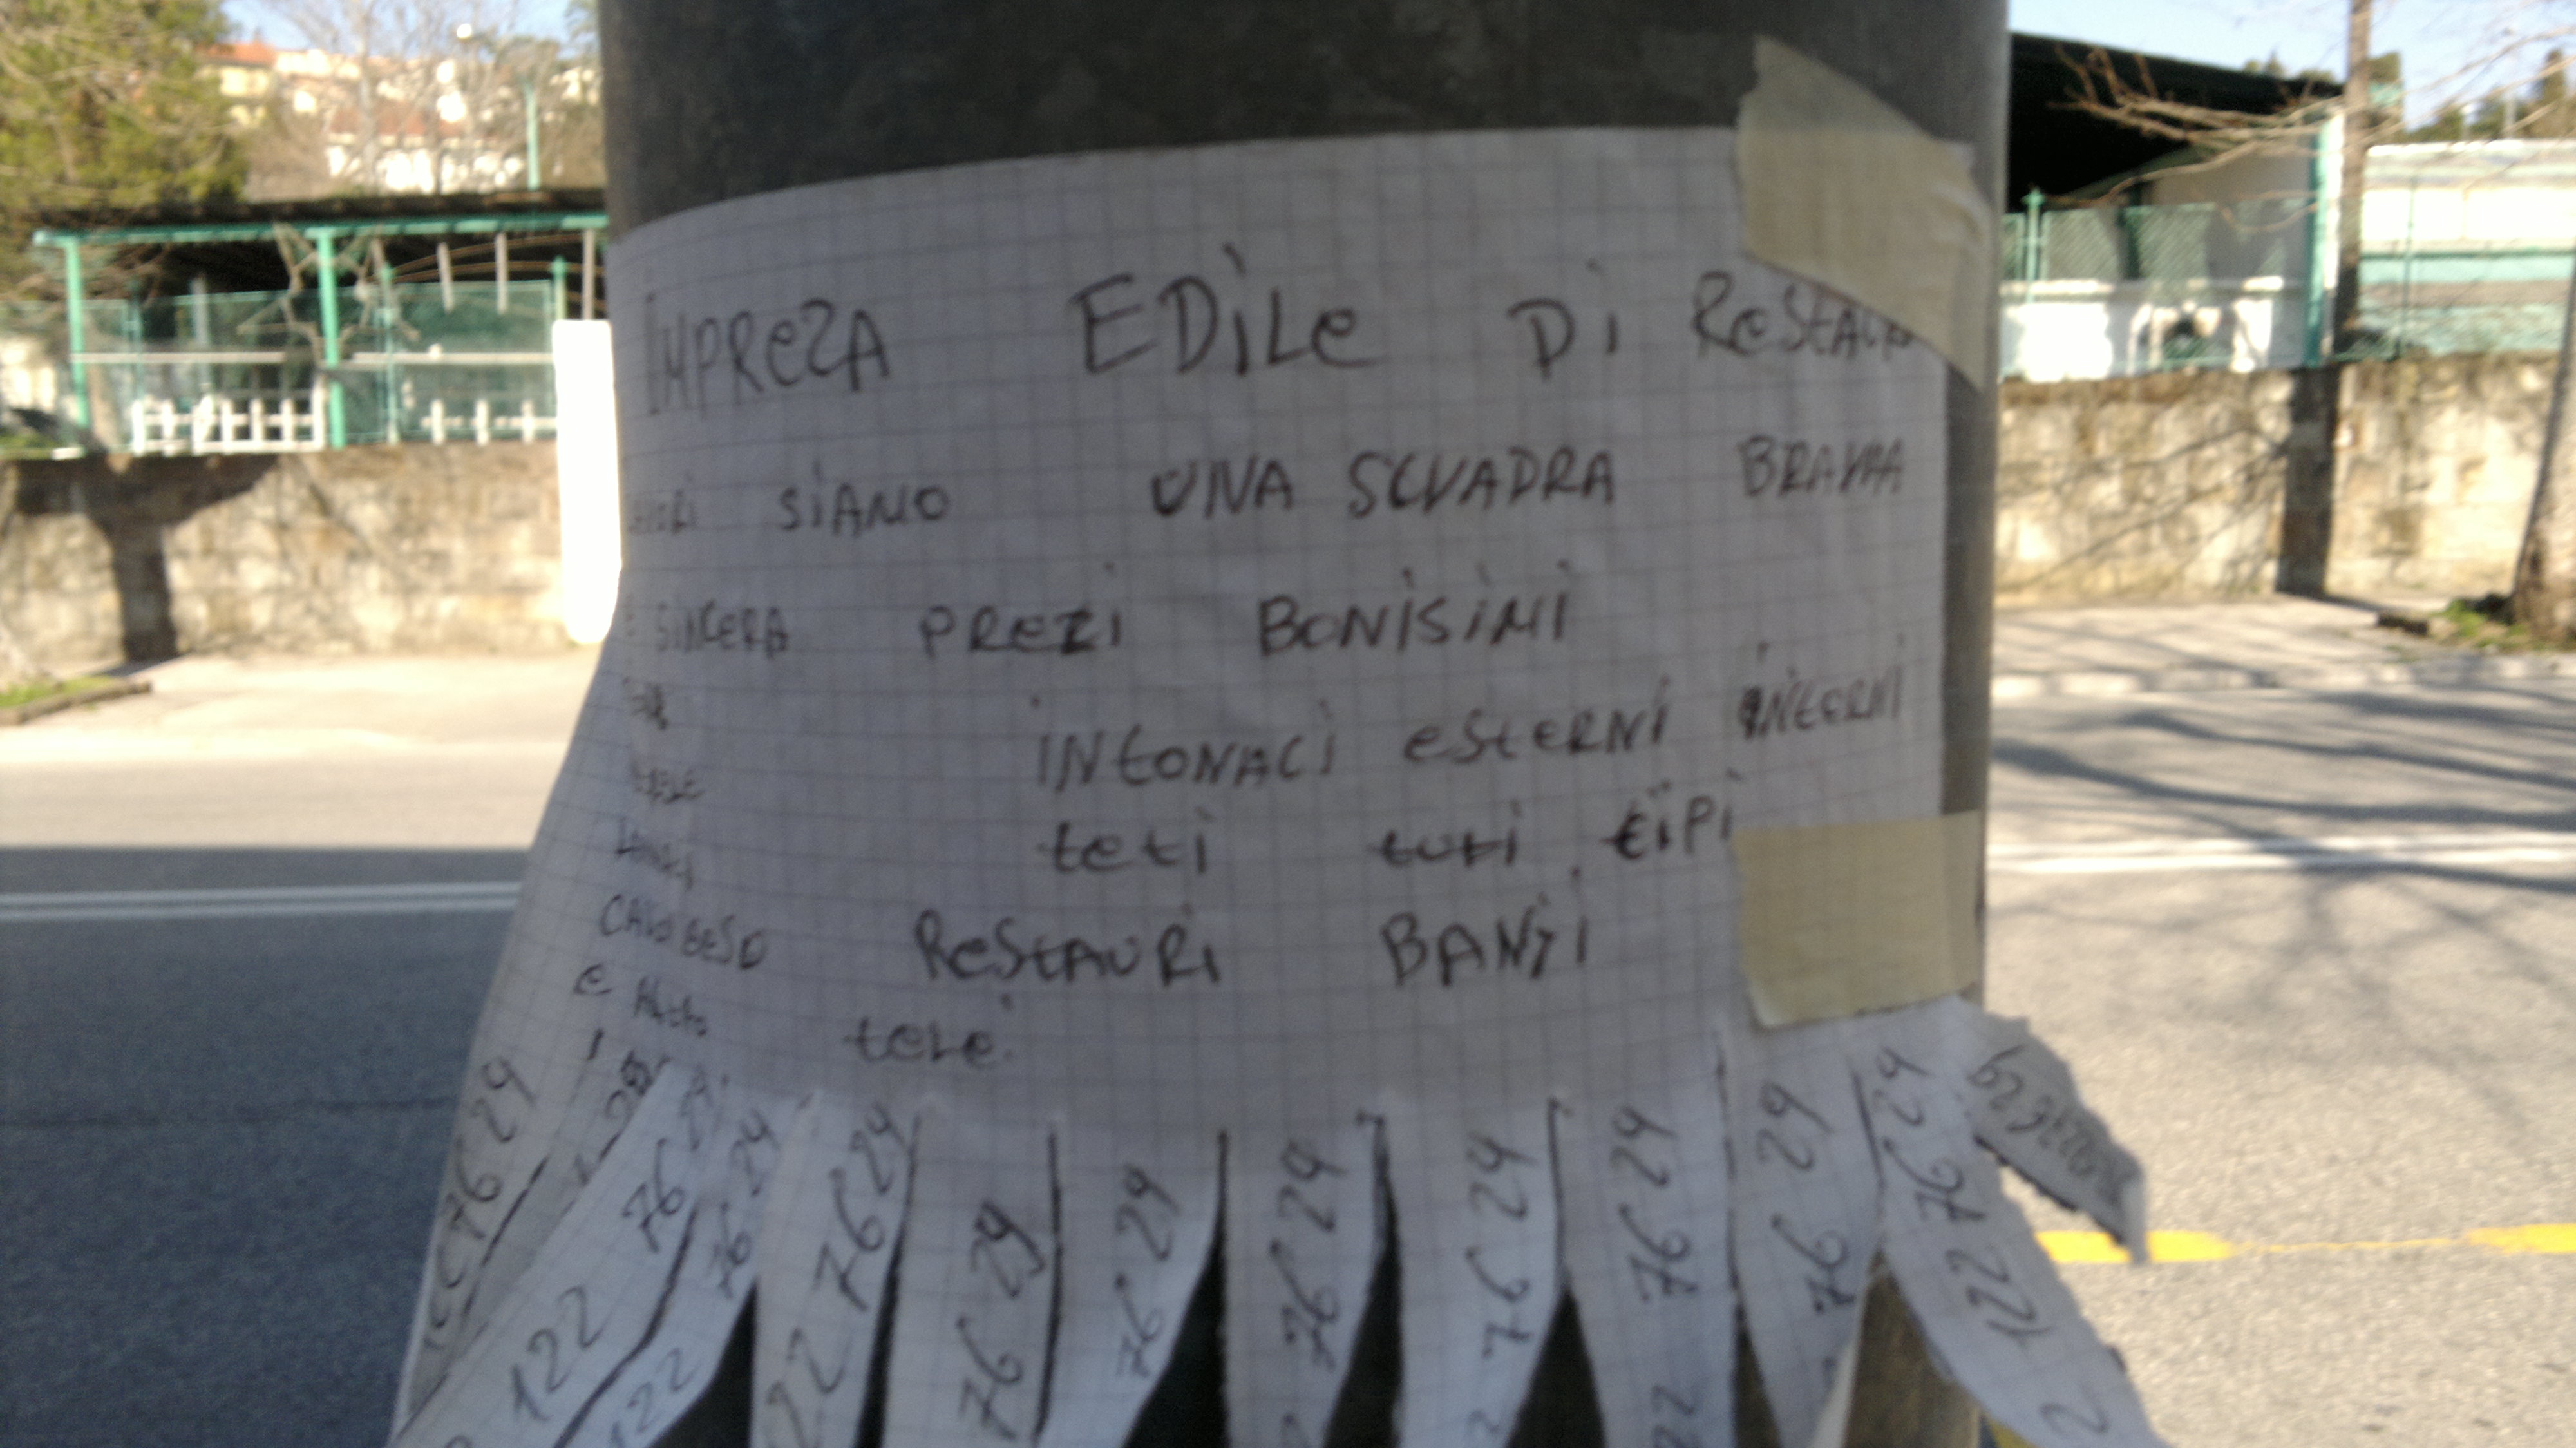 IMPREZA EDILE DI RESTAURO
SIAMO UNA SCUADRA BRAVA
E SINCERA PREZI BONISIMI
INTONACI ESTERNI INTERNI
teti tuti tipi
RESTAURI BANJI
e Altro
tele
76 29
122 76 29
122 76 24
22 76 29
76 29
76 29
76 24
76 24
76 29
76 29
122 76 29